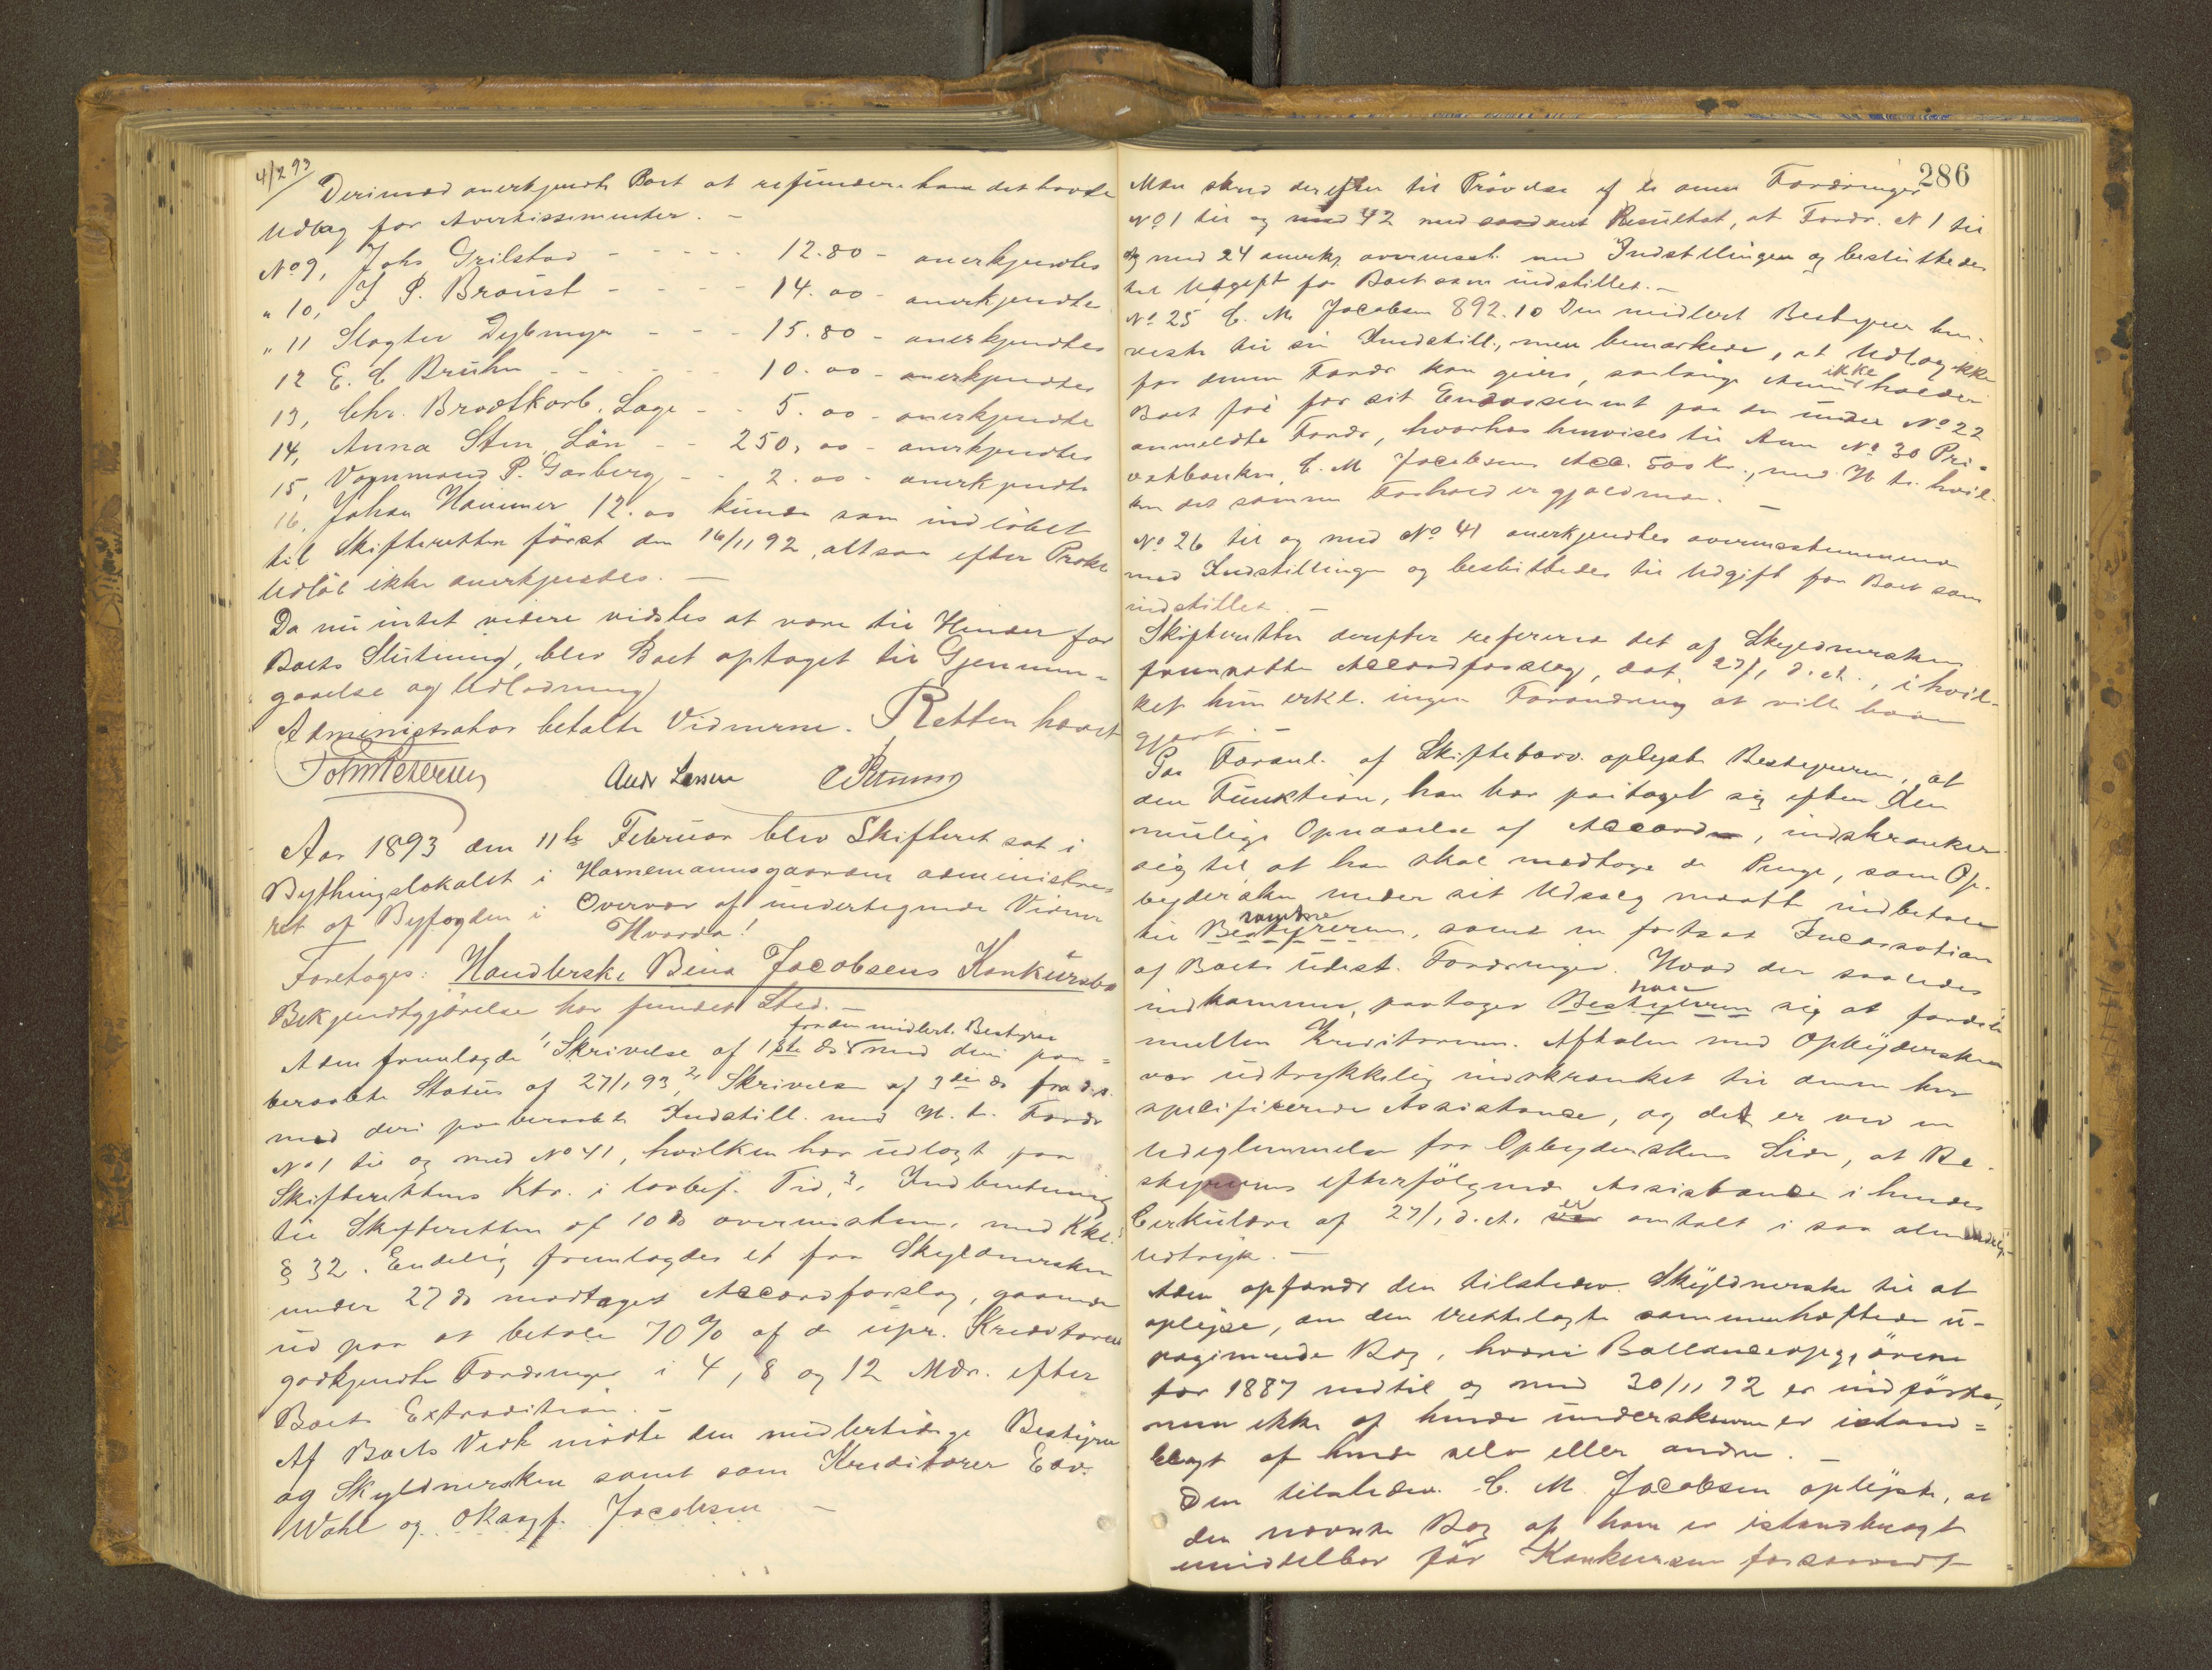 4/2 93
Derimod anerkjendte Boet at refundere ham det havte
Udlæg for Avertissementer. -
No 9, Johs Grilstad - - - - - 12.80 - anerkjendtes
" 10, J P. Braust - - - - 14.00 - anerkjendte
" 11 Slagter Dybmyr - - - 15.80 - anerkjendtes
12 E. C Bruhn - - - - - - 10.00 - anerkjendtes
13, Chr. Brodtkorb. Lage - - 5.00 - anerkjendte
14, Anna Sten, Lön - - 250,00 - anerkjendtes
15, Vognmand P. Garberg - - 2.00 - anerkjendte
16, Johan Hammer 12.00 kunde som indlöbet
til Skifteretten först den 16/11 92, altsaa efter Prokl
Udlöb ikke anerkjendtes. -
Da nu intet videre vidstes at være til Hinder for
Boets Slutning, blev Boet optaget til Gjennem-
gaaelse og Udlodning
Administrator betalte Vidnerne. Retten hævet
John Petersen Andr Larsen
Aar 1893 den 11te Februar blev Skifteret sat i
Bythingslokalet i Hornemannsgaarden administre-
ret af Byfogden i Overvær af undertegnede Vidner
Hvorda!
Foretoges: Handlerske Bina Jacobsens Konkursbo
Bekjendtgjörelse har fundet Sted. -
fra den midlert. Bestyrer
Adm fremlagde 1, Skrivelse af 1ste ds med deri paa-
beraabte Status af 27/1 93, 2, Skrivelse af 3die ds fra d.s.
med deri paaberaabte Indstill. med H. t. Fordr
No 1 til og med No 41, hvilken har udlagt paa
Skifterettens Ktr. i lovbef. Tid, 3, Indberetning
til Skifteretten af 10 ds overensstem. med Kkl.
§ 32. Endelig fremlagdes et fra Skyldnersken
under 27 ds modtaget Accordforslag, gaaende
ud paa at betale 70% af de upr. Kreditorers
godkjendte Fordringer i 4, 8 og 12 Mdr. efter
Boets Extradition. -
Af Boets Vedk mödte den midlertidige Bestyrer
og Skyldnersken samt som Kreditorer Edv.
Wahl og Jacobsen -
286
Man skred derefter til Prövelse af de anm Fordringer
No 1 til og med 42 med saadant Resultat, at Fordr. N 1 til
og med 24 anerkj overensst. med Indstillingen og besluttedes
til Udgift for Boet som indstillet. -
No 25 C. M. Jacobsen 892.10 Den midlert Bestyrer hen-
viste til sin Indstill., men bemærkede, at Udlæg ikke
for denne Fordr kan gives, saalænge Anm ikke holder
Boet fri for sit Endossement paa den under No 22
anmeldte Fordr, hvorhos henvises til Anm No 30 Pri-
vatbanken, C. M Jacobsens Acc. 500 Kr., med H. t. hvil-
ken det samme Forhold er gjældende. -
No 26 til og med No 41 anerkjendtes overensstemmende
med Indstillingen og besluttedes til Udgift for Boet som
indstillet. -
Skifteretten derefter refererede det af Skyldnersken
fremsatte Accordforslag, dat. 27/1 d. A., i hvil-
ket hun erkl. ingen Forandring at ville have
gjort. -
Paa Foranl. af Skifteforv. oplyste Bestyreren, at
den Funktion, han har paataget sig efter den
mulige Opnaaelse af Accord, indskrænker
sig til, at han skal modtage de Penge, som Op-
byderskn under sit Udsalg maatte indbetale
til samme Bestyreren, samt en fortsat Incassation
af Boets udest. Fordringer. Hvad der saaledes
indkommer, paatager han Bestyreren sig at fordele
mellem Kreditorerne. Aftalen med Opbydersken
var udtrykkelig indskrænket til denne her
specificerede Assistance, og det er ved en
Udeglemmelse fra Opbyderskens Side, at Be-
styrerens efterfölgende Assistance i hendes
Cirkulære af 27/1 d. A. er omtalt i saa almindelige
Udtryk. -
Adm opfordr den tilstedev. Skyldnerske til at
oplyse, om den fremlagte sammenhæftede u-
paginerede Bog, hvori Ballanceopgjörene
for 1887 indtil og med 30/11 92 er indförte,
men ikke af hende underskrevne er istand-
bragt af hende selv eller andre. -
Den tilstedev. C. M. Jacobsen oplyste, at
den nævnte Bog af ham er istandbragt
umiddelbar för Konkursen forsaavidt